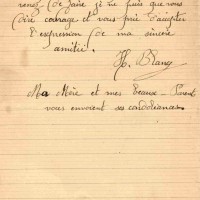 venez de faire je ne puis que vous
dire courage et vous prie d'accepter
l'expression de ma sincère
amitié.
H. Blanc
Ma Mère et mes Beaux-Parents
vous envoient ses condoléances